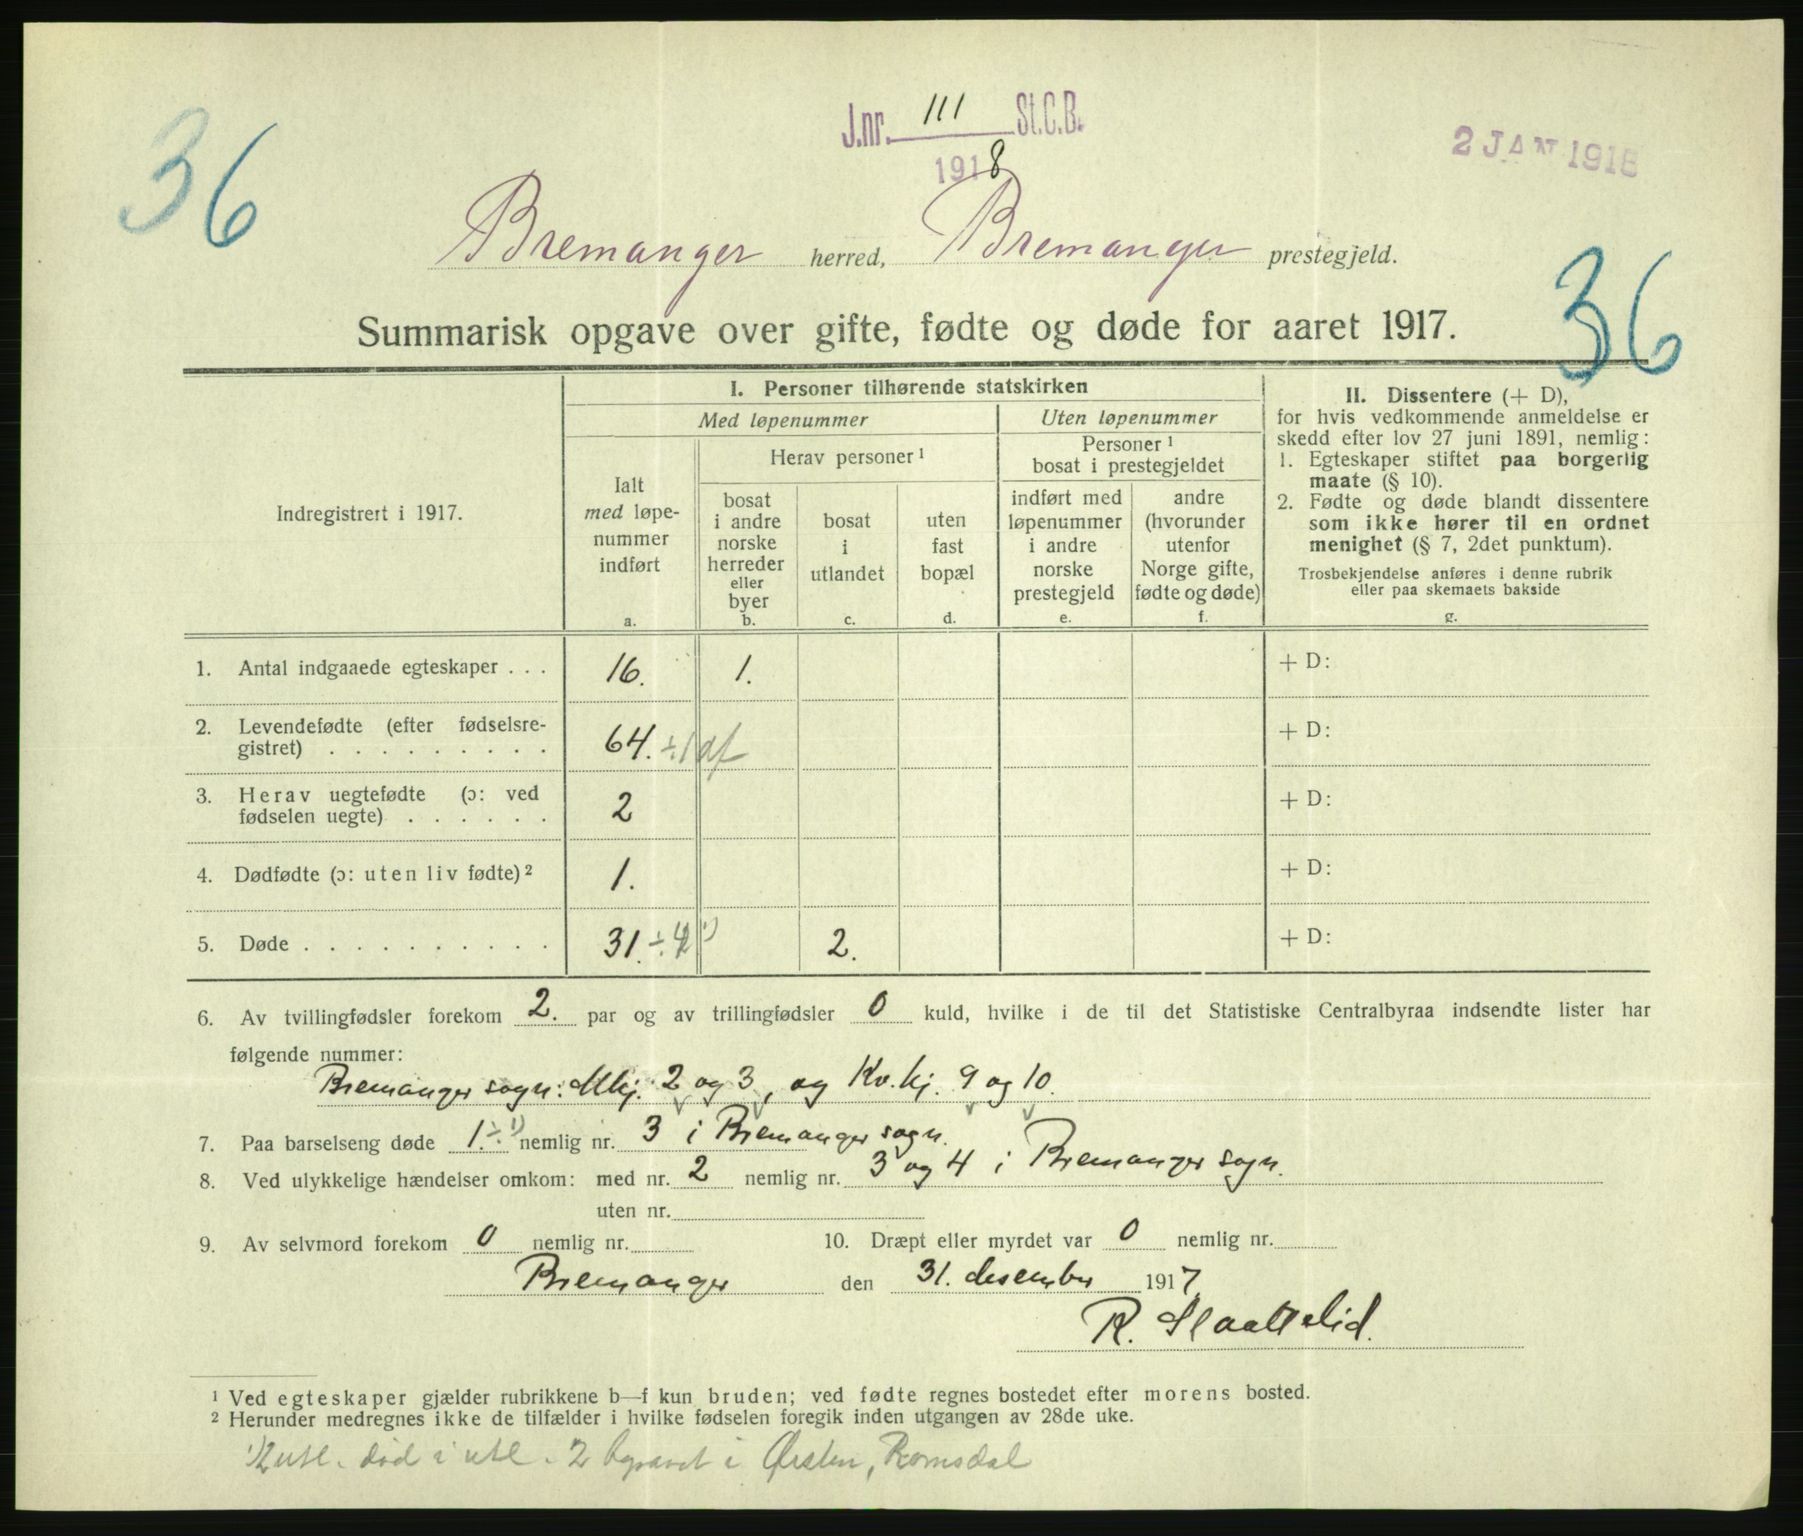 36
J.nr. 111 St.C.B.
1918
2 JAN 1918
Bremanger herred, Bremanger prestegjeld.
36
Summarisk opgave over gifte, fødte og døde for aaret 1917.
Indregistrert i 1917.
I. Personer tilhørende statskirken
Med løpenummer
Uten løpenummer
Ialt
med løpe-
nummer
indført
a.
Herav personer ¹
bosat
i andre
norske
herreder
eller
byer
b.
bosat
i
utlandet
c.
uten
fast
bopæl
d.
Personer ¹
bosat i prestegjeldet
indført med
løpenummer
i andre
norske
prestegjeld
e.
andre
(hvorunder
utenfor
Norge gifte,
fødte og døde)
f.
II. Dissentere (+ D),
for hvis vedkommende anmeldelse er
skedd efter lov 27 juni 1891, nemlig:
1. Egteskaper stiftet paa borgerlig
maate (§ 10).
2. Fødte og døde blandt dissentere
som ikke hører til en ordnet
menighet (§ 7, 2det punktum).
Trosbekjendelse anføres i denne rubrik
eller paa skemaets bakside
g.
1. Antal indgaaede egteskaper . . . 16. 1. + D:
2. Levendefødte (efter fødselsre-
gistret) . . . . . . . . . 64. ÷1 df + D:
3. Herav uegtefødte (ɔ: ved
fødselen uegte) . . . . . . 2 + D:
4. Dødfødte (ɔ: uten liv fødte) ² 1. + D:
5. Døde . . . . . . . . . . 31. ÷ 4 ¹) 2. + D:
6. Av tvillingfødsler forekom 2. par og av trillingfødsler 0 kuld, hvilke i de til det Statistiske Centralbyraa indsendte lister har
følgende nummer:
Bremanger sogn: Mkj. 2 og 3, og Kv.kj. 9 og 10.
7. Paa barselseng døde 1. ÷ ¹) nemlig nr. 3 i Bremanger sogn.
8. Ved ulykkelige hændelser omkom: med nr. 2 nemlig nr. 3 og 4 i Bremanger sogn.
uten nr.
9. Av selvmord forekom 0 nemlig nr. 10. Dræpt eller myrdet var 0 nemlig nr.
Bremanger den 31. desember 1917
R. Slaattelid.
¹ Ved egteskaper gjælder rubrikkene b—f kun bruden; ved fødte regnes bostedet efter morens bosted.
² Herunder medregnes ikke de tilfælder i hvilke fødselen foregik inden utgangen av 28de uke.
¹) 2 utl. død i utl. 2 begravet i Ørsten, Romsdal